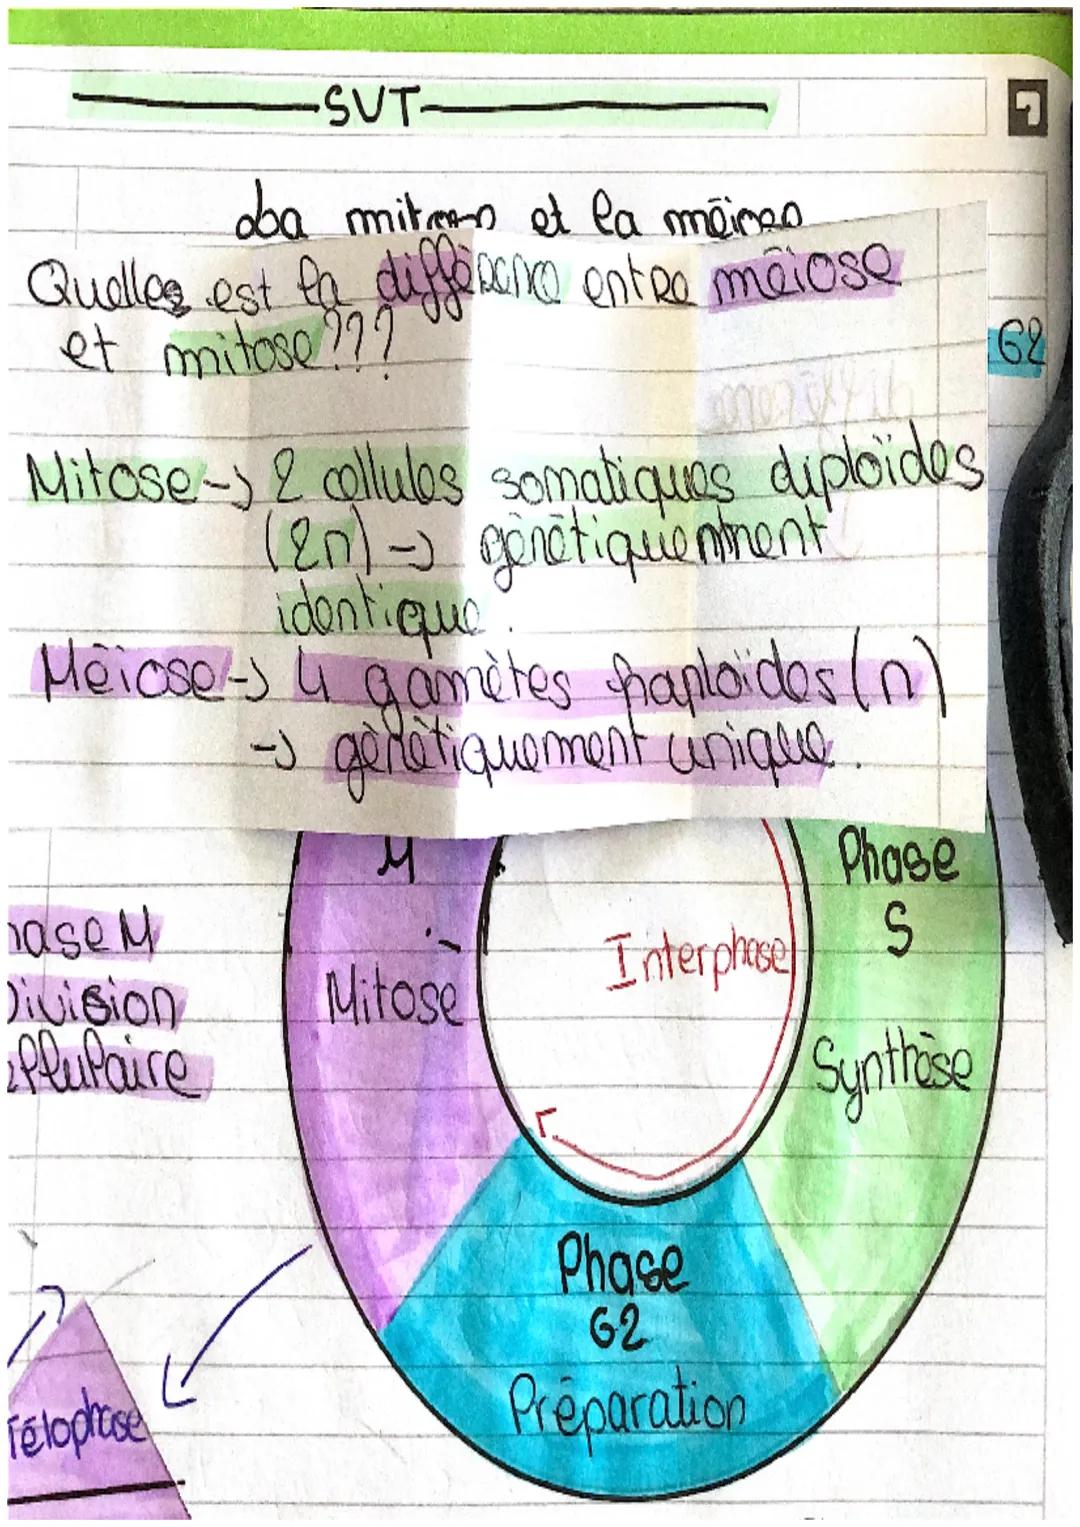 SVT
La mitose et la méiose
Quelles est la différence entre méiose
et mitose???
G2
Mitose -> 2 cellules somatiques diploïdes
(2n) -> génétiquement
identique.
Méiose -> 4 gamètes haploïdes (n)
-> génétiquement unique.
M
Mitose
Interphase
Phase
S
Synthèse
hase M
Division
ellulaire
Phase
G2
Préparation
Télophase